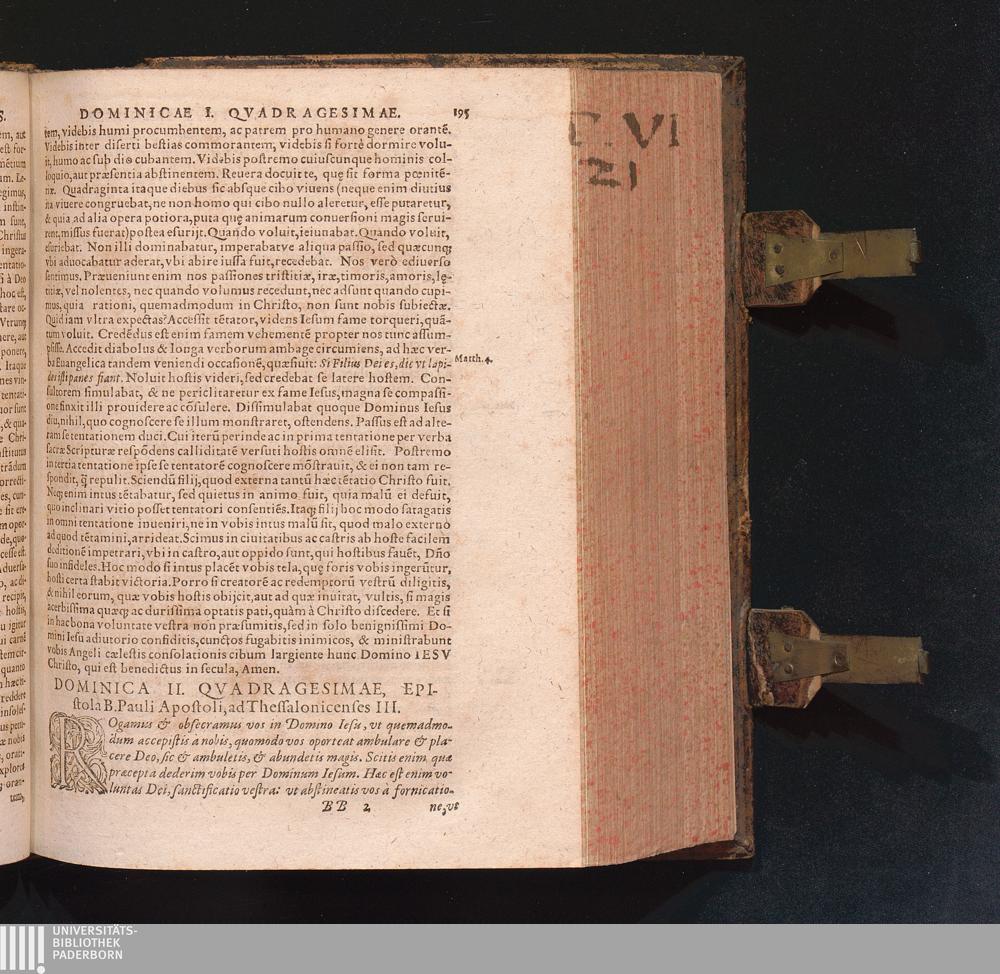 DOMINICAE I. QVADRAGESIMAE. 195
tem, videbis humi procumbentem, ac patrem pro humano genere orantẽ.
Videbis inter diserti bestias commorantem, videbis si fortè dormire volu-
it, humo ac sub dio cubantem. Videbis postremo cuiuscunque hominis col-
loquio, aut præsentia abstinentem. Reuera docuit te, quę sit forma pœnitẽ-
tiæ. Quadraginta itaque diebus sic absque cibo viuens (neque enim diutius
ita viuere congruebat, ne non homo qui cibo nullo aleretur, esse putaretur,
& quia ad alia opera potiora, puta quę animarum conuersioni magis serui-
rent, missus fuerat) postea esurijt. Quando voluit, ieiunabat. Quando voluit,
esuriebat. Non illi dominabatur, imperabatve aliqua passio, sed quæcunq;
vbi aduocabatur aderat, vbi abire iussa fuit, recedebat. Nos verò ediuerso
sentimus. Præueniunt enim nos passiones tristitiæ, iræ, timoris, amoris, lę-
titiæ, vel nolentes, nec quando volumus recedunt, nec adsunt quando cupi-
mus, quia rationi, quemadmodum in Christo, non sunt nobis subiectæ.
Quid iam vltra expectas? Accessit tẽtator, videns Iesum fame torqueri, quã-
tum voluit. Credẽdus est enim famem vehementẽ propter nos tunc assum-
psisse. Accedit diabolus & longa verborum ambage circumiens, ad hæc ver-
ba Euangelica tandem veniendi occasionẽ, quæsiuit: Si Filius Dei es, dic vt lapi-
Matth. 4.
des isti panes fiant. Noluit hostis videri, sed credebat se latere hostem. Con-
sultorem simulabat, & ne periclitaretur ex fame Iesus, magna se compassi-
one finxit illi prouidere ac cõsulere. Dissimulabat quoque Dominus Iesus
diu, nihil, quo cognoscere se illum monstraret, ostendens. Passus est ad alte-
ram se tentationem duci. Cui iterũ perinde ac in prima tentatione per verba
sacræ Scripturæ respõdens calliditatẽ versuti hostis omnẽ elisit. Postremo
in tertia tentatione ipse se tentatorẽ cognoscere mõstrauit, & ei non tam re-
spondit, q̃ repulit. Sciendũ filij, quod externa tantũ hæc tẽtatio Christo fuit.
Neq; enim intus tẽtabatur, sed quietus in animo fuit, quia malũ ei defuit,
quo inclinari vitio posset tentatori consentiẽs. Itaq; filij hoc modo satagatis
in omni tentatione inueniri, ne in vobis intus malũ sit, quod malo externo
ad quod tẽtamini, arrideat. Scimus in ciuitatibus ac castris ab hoste facilem
deditionẽ impetrari, vbi in castro, aut oppido sunt, qui hostibus fauẽt, Dño
suo infideles. Hoc modo si intus placẽt vobis tela, quę foris vobis ingerũtur,
hosti certa stabit victoria. Porro si creatorẽ ac redemptorũ vestrũ diligitis,
& nihil eorum, quæ vobis hostis obijcit, aut ad quæ inuitat, vultis, si magis
acerbissima quæq; ac durissima optatis pati, quàm à Christo discedere. Et si
in hac bona voluntate vestra non præsumitis, sed in solo benignissimi Do-
mini Iesu adiutorio confiditis, cunctos fugabitis inimicos, & ministrabunt
vobis Angeli cælestis consolationis cibum largiente hunc Domino IESV
Christo, qui est benedictus in secula, Amen.
DOMINICA II. QVADRAGESIMAE, EPI-
stola B. Pauli Apostoli, ad Thessalonicenses IIII.
ROgamus & obsecramus vos in Domino Iesu, vt quemadmo-
dum accepistis a nobis, quomodo vos oporteat ambulare & pla-
cere Deo, sic & ambuletis, & abundetis magis. Scitis enim quæ
præcepta dederim vobis per Dominum Iesum. Hæc est enim vo-
luntas Dei, sanctificatio vestra: vt abstineatis vos à fornicatio-
BB 2 ne, vt
C. VI
21
UNIVERSITÄTS-
BIBLIOTHEK
PADERBORN